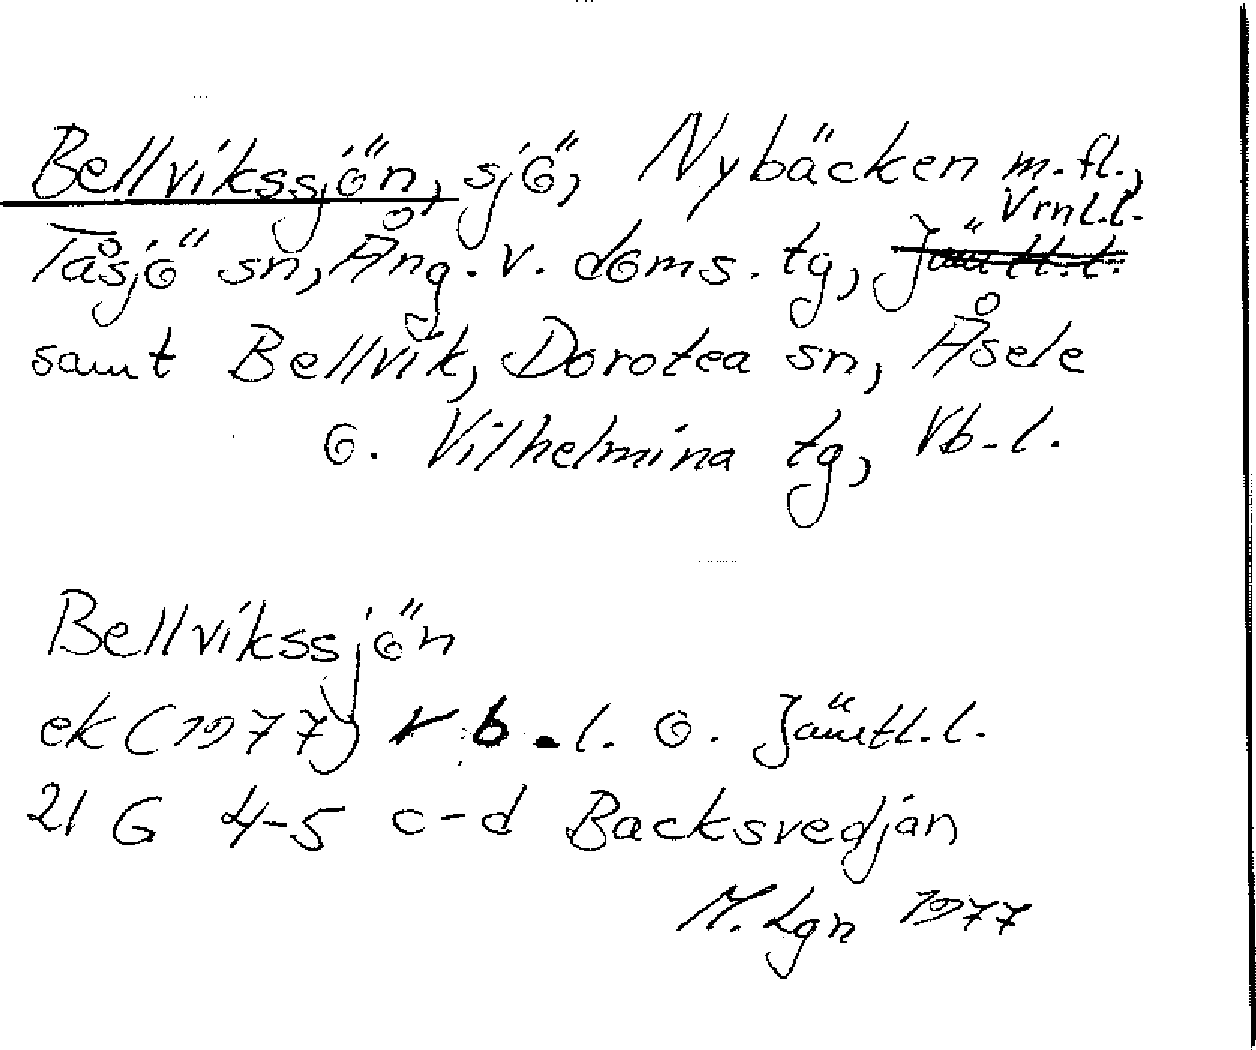 Bellvikssjön, sjö, Nybäcken m.fl.,
Vrnl.l.
Tåsjö sn, Ång. v. doms. tg, Jämtl.l.
samt Bellvik, Dorotea sn, Åsele
o. Vilhelmina tg, Vb-l.
Bellvikssjön
ek (1977) V.b.l. o. Jämtl.l.
21 G 4-5 c-d Backsvedjan
M. Lgn 1977